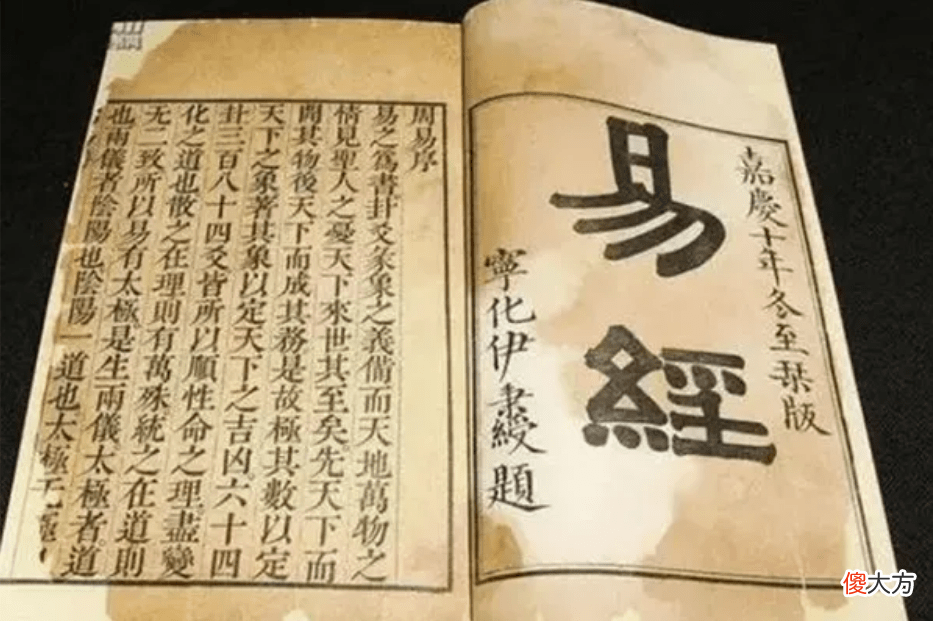 嘉慶十年冬至栞版
易經
寧化伊秉綬題
周易序
易之爲書卦爻彖象之義備而天地萬物之
情見聖人之憂天下來世其至矣先天下而
開其物後天下而成其務是故極其數以定
天下之象著其象以定天下之吉凶六十四
卦三百八十四爻皆所以順性命之理盡變
化之道也散之在理則有萬殊統之在道則
无二致所以易有太極是生兩儀太極者道
也兩儀者陰陽也陰陽一道也太極无極
傻大方